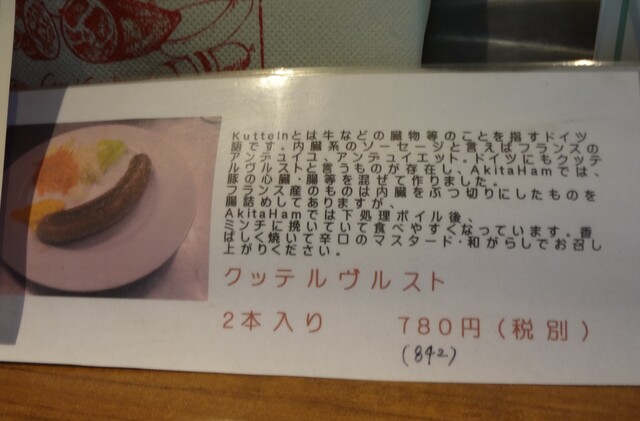 Kuttelnとは牛などの臓物等のことを指すドイツ
語です。内臓系のソーセージと言えばフランスの
アンデュイユ、アンデュイエット。ドイツにもクッテ
ルヴルストと言うものが存在し、AkitaHamでは、
豚の心臓・腸等を混ぜて作りました。
フランス産のものは内臓をぶつ切りにしたものを
腸詰めしてありますが、
AkitaHamでは下処理ボイル後、
ミンチに挽いていて食べやすくなっています。香
ばしく焼いて辛口のマスタード・和がらしでお召し
上がりください。
クッテルヴルスト
2本入り 780円(税別)
(842)